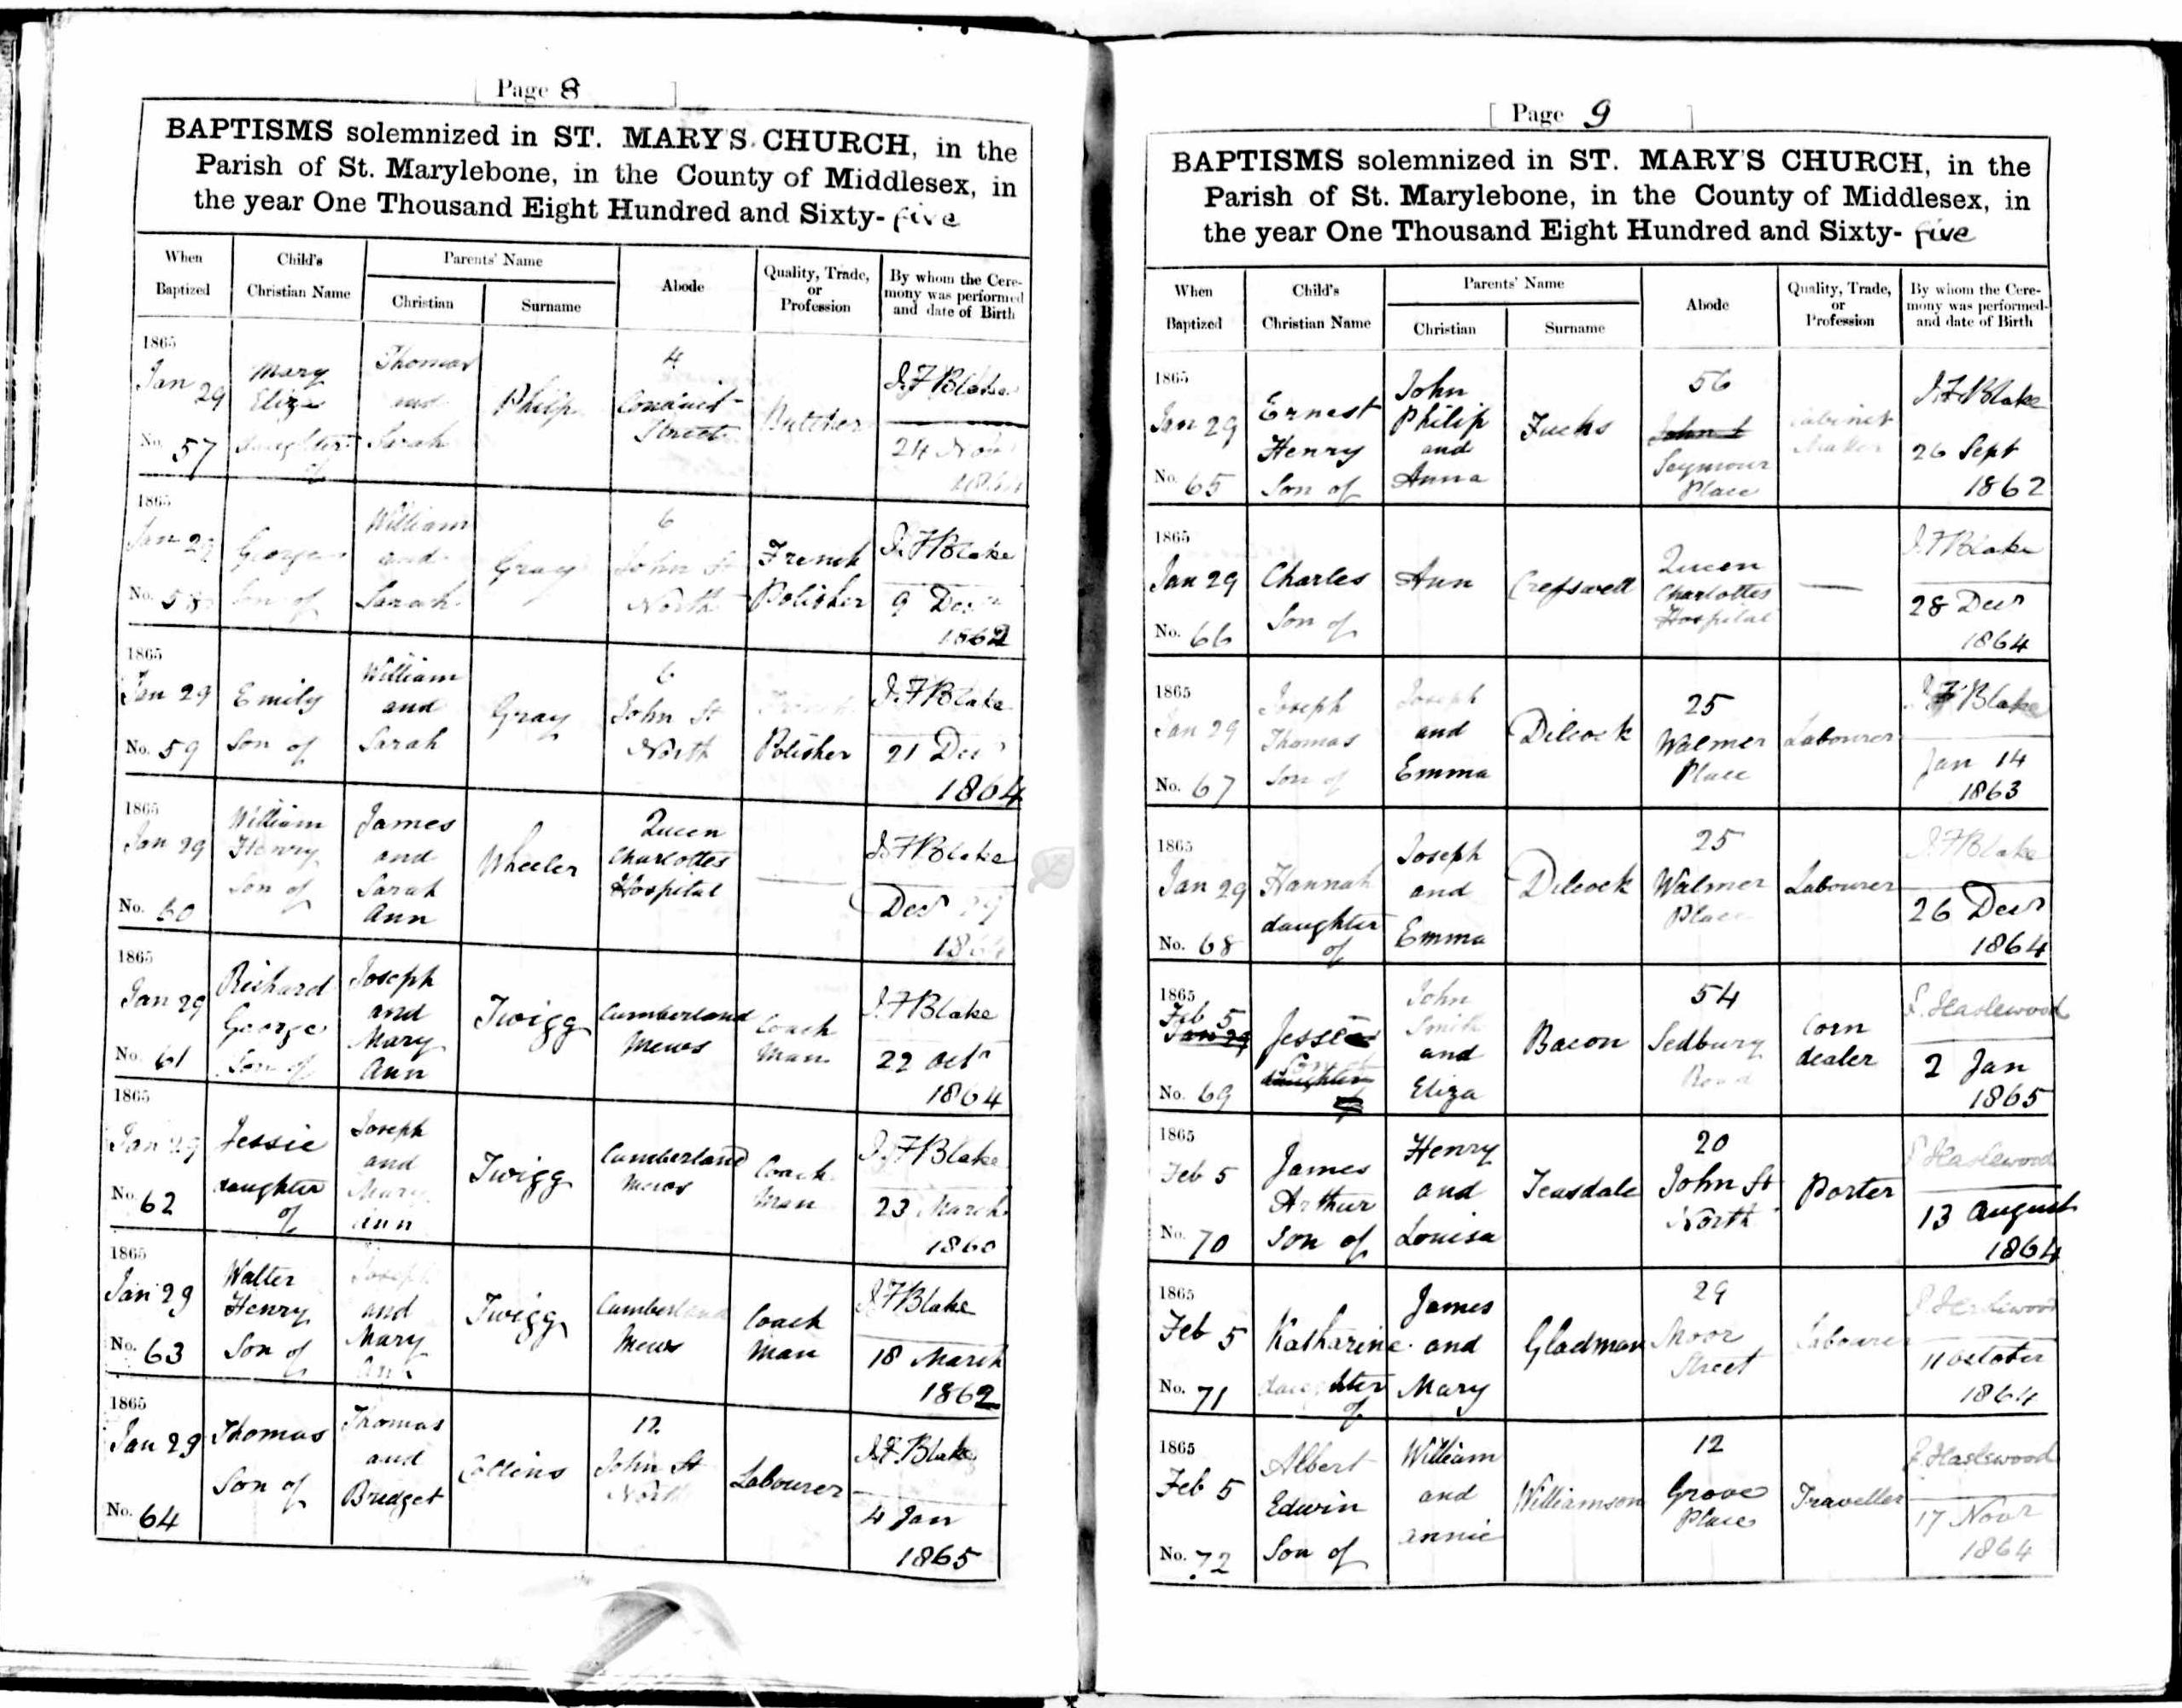 Page 8
BAPTISMS solemnized in ST. MARY'S CHURCH, in the
Parish of St. Marylebone, in the County of Middlesex, in
the year One Thousand Eight Hundred and Sixty-five
When Baptized
Child's Christian Name
Parents' Name
Christian
Surname
Abode
Quality, Trade, or Profession
By whom the Ceremony was performed and date of Birth
1865 Jan 29 No. 57
Mary Eliza daughter of
Thomas and Sarah
Philp
4 Conduit Street
Butcher
J. F Blake
24 Nov 1864
1865 Jan 29 No. 58
George Son of
William and Sarah
Gray
6 John St North
French Polisher
J. F Blake
9 Decr 1862
1865 Jan 29 No. 59
Emily Son of
William and Sarah
Gray
6 John St North
French Polisher
J. F Blake
21 Decr 1864
1865 Jan 29 No. 60
William Henry Son of
James and Sarah Ann
Wheeler
Queen Charlottes Hospital
—
J. F Blake
Decr 29 1864
1865 Jan 29 No. 61
Richard George Son of
Joseph and Mary Ann
Twigg
Cumberland Mews
Coach Man
J. F Blake
22 Octr 1864
1865 Jan 29 No. 62
Jessie daughter of
Joseph and Mary Ann
Twigg
Cumberland Mews
Coach Man
J. F Blake
23 March 1860
1865 Jan 29 No. 63
Walter Henry Son of
Joseph and Mary Ann
Twigg
Cumberland Mews
Coach Man
J. F Blake
18 March 1862
1865 Jan 29 No. 64
Thomas Son of
Thomas and Bridget
Collins
12 John St North
Labourer
J. F. Blake
4 Jan 1865
Page 9
BAPTISMS solemnized in ST. MARY'S CHURCH, in the
Parish of St. Marylebone, in the County of Middlesex, in
the year One Thousand Eight Hundred and Sixty-five
When Baptized
Child's Christian Name
Parents' Name
Christian
Surname
Abode
Quality, Trade, or Profession
By whom the Ceremony was performed and date of Birth
1865 Jan 29 No. 65
Ernest Henry Son of
John Philip and Anna
Fuchs
56 John S Seymour Place
Cabinet Maker
J. F Blake
26 Sept 1862
1865 Jan 29 No. 66
Charles Son of
Ann
Cresswell
Queen Charlottes Hospital
—
J. F Blake
28 Decr 1864
1865 Jan 29 No. 67
Joseph Thomas Son of
Joseph and Emma
Dilcock
25 Walmer Place
Labourer
J. F Blake
Jan 14 1863
1865 Jan 29 No. 68
Hannah daughter of
Joseph and Emma
Dilcock
25 Walmer Place
Labourer
J. F Blake
26 Decr 1864
1865 Feb 5 Jan 29 No. 69
Jesse Son of daughter of
John Smith and Eliza
Bacon
54 Sedbury Road
Corn dealer
Haslewood
2 Jan 1865
1865 Feb 5 No. 70
James Arthur Son of
Henry and Louisa
Teasdale
20 John St North
Porter
Haslewood
13 August 1864
1865 Feb 5 No. 71
Katharine daughter of
James and Mary
Gladman
29 Moor Street
Labourer
Haslewood
11 October 1864
1865 Feb 5 No. 72
Albert Edwin Son of
William and annie
Williamson
12 Grove Place
Traveller
Haslewood
17 Novr 1864